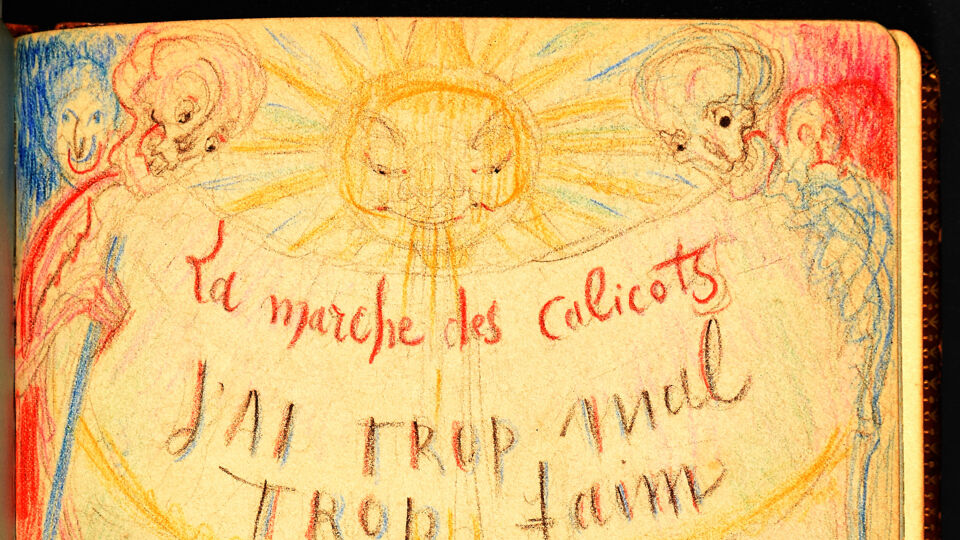 La marche des calicots
J'AI TROP mal
TROP faim